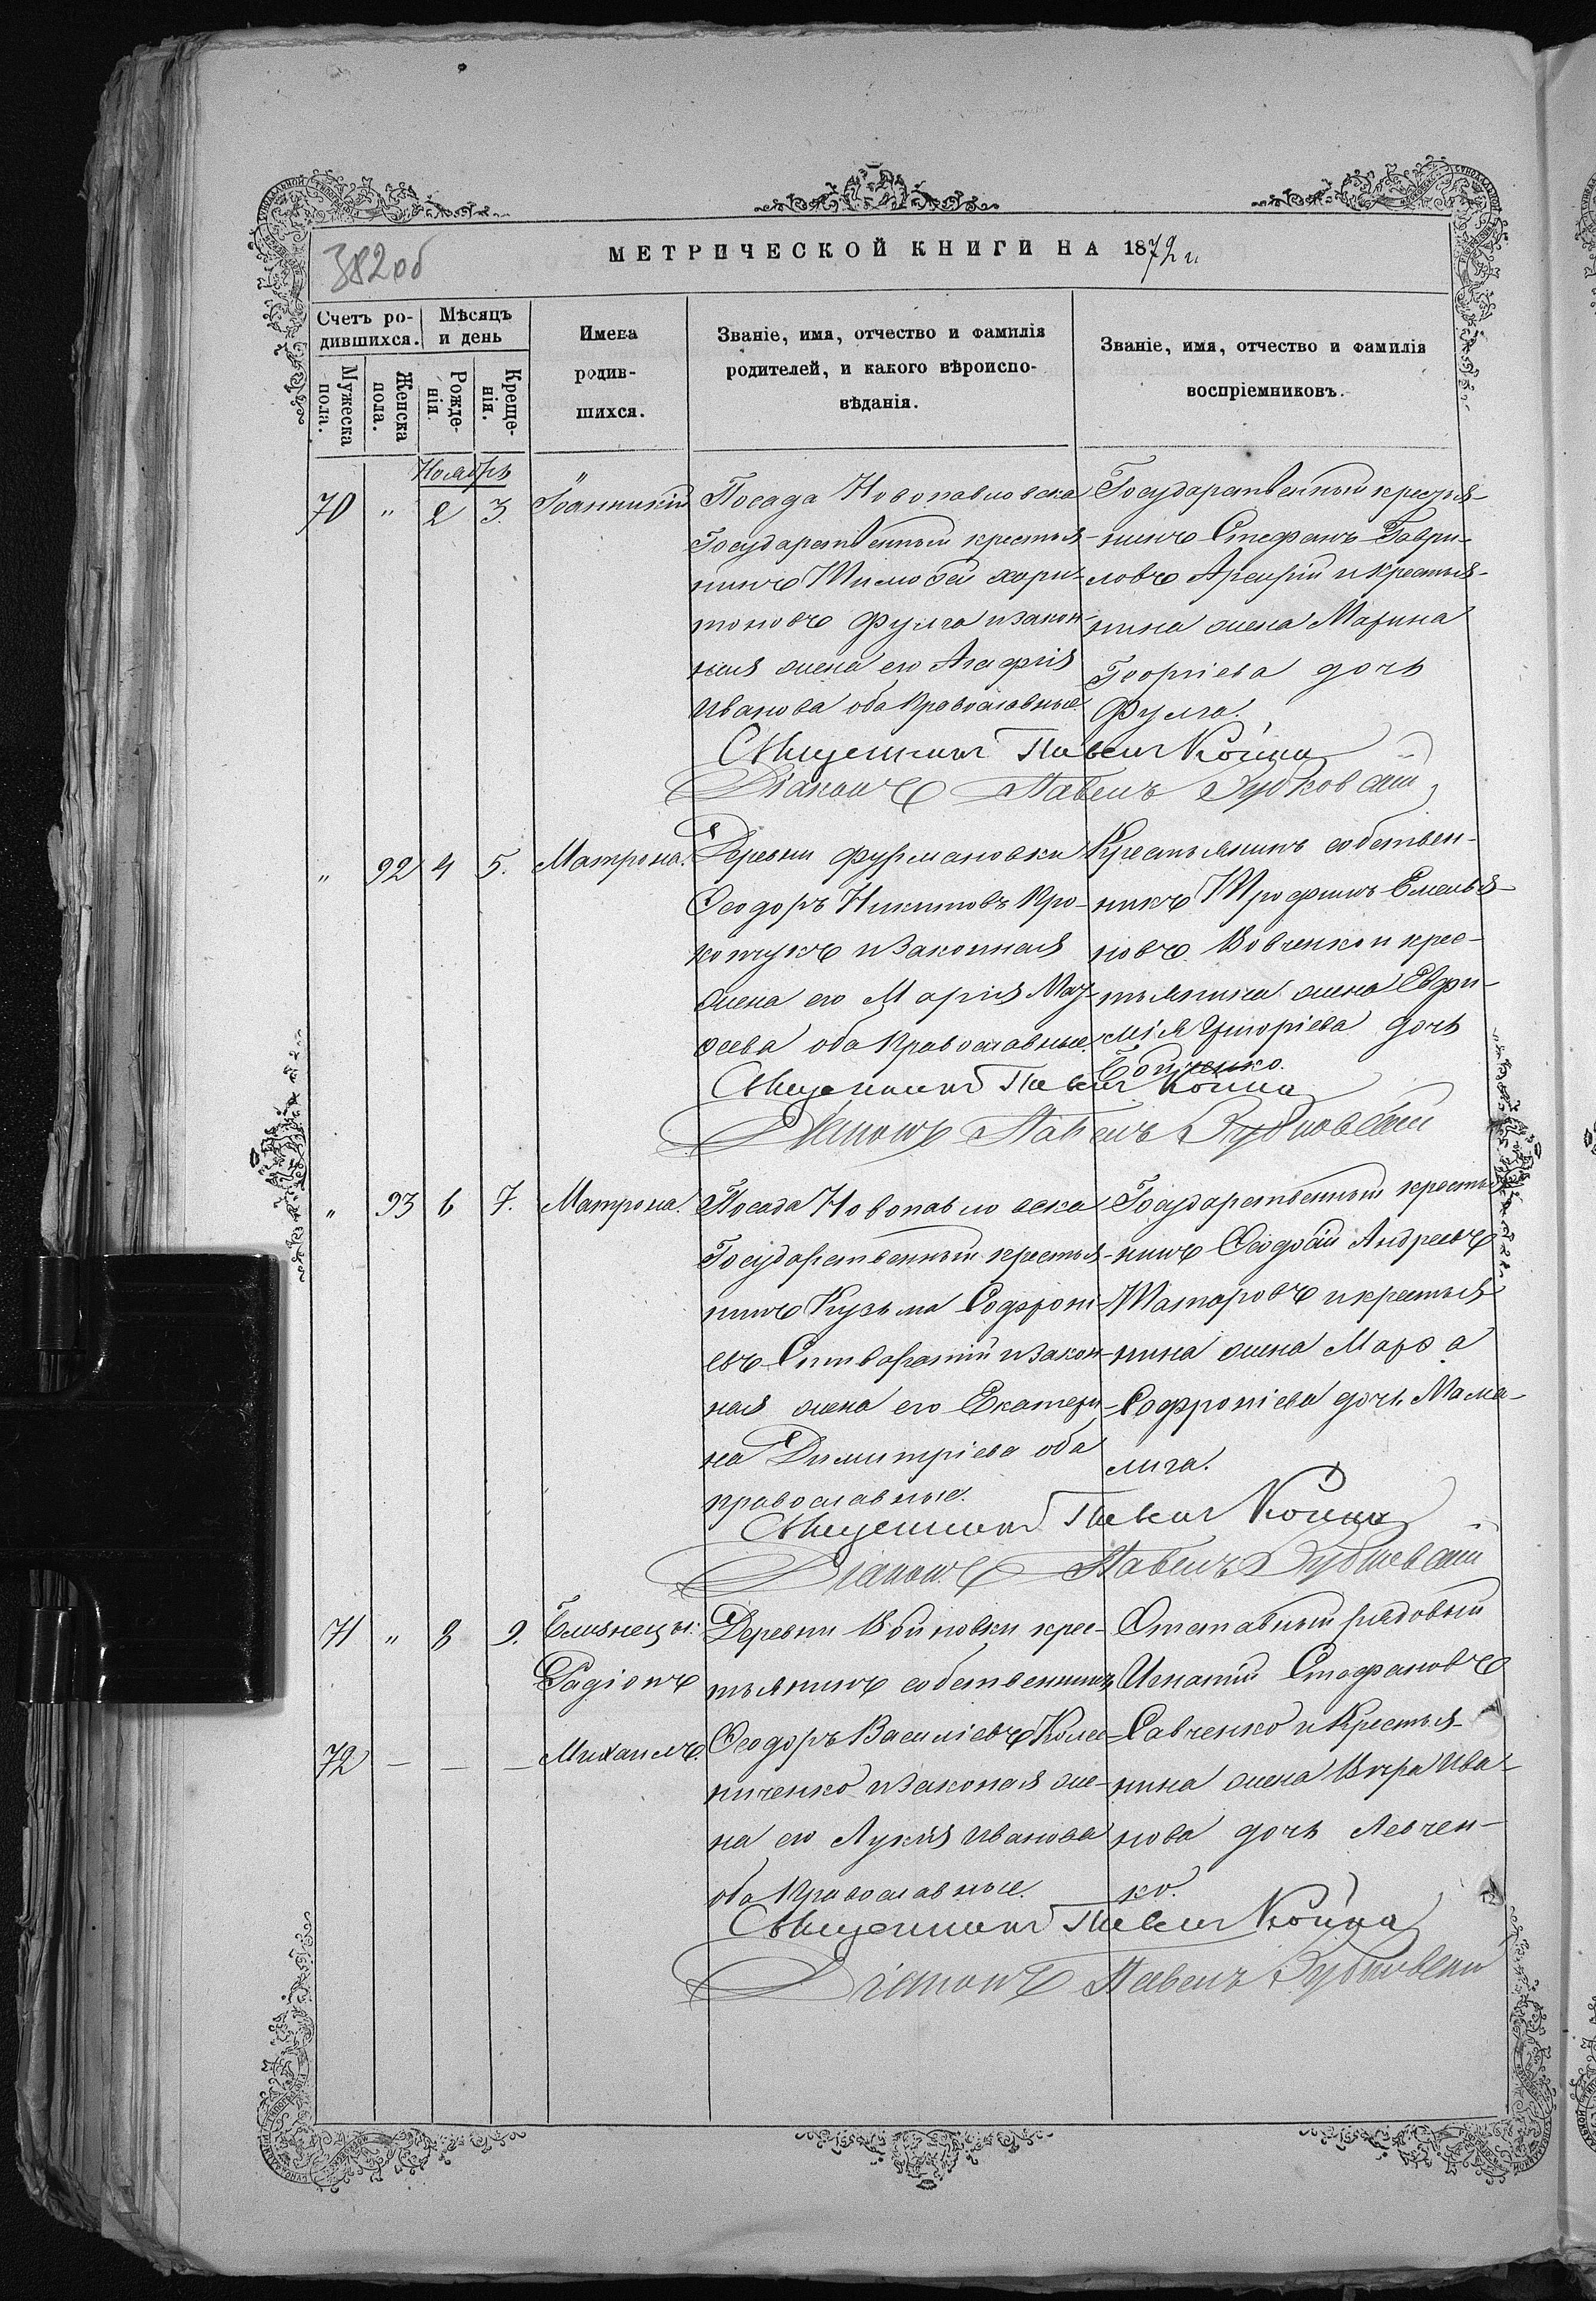 382об
МЕТРИЧЕСКОЙ КНИГИ НА 1872 г.
Счетъ ро-
дившихся.
Мѣсяцъ
и день
Мужеска
пола.
Женска
пола.
Рожде-
нія.
Креще-
нія.
Имена
родив-
шихся.
Званіе, имя, отчество и фамилія
родителей, и какого вѣроиспо-
вѣданія.
Званіе, имя, отчество и фамилія
воспріемниковъ.
Ноябрь
70 " 2 3. Іоанникій
Посада Новопавловска
Государственный крестья-
нинъ Тимофей Хари-
тоновъ Фулга и закон-
ная жена его Агафія
Иванова оба православные.
Государственный крестья-
нинъ Стефанъ Гаври-
ловъ Арсеній и крестья-
нина жена Марина
Георгіева дочь
Фулга.
Священникъ Павелъ Койка
Діаконъ Павелъ Зубковскій
" 92 4 5. Матрона.
Деревни Фурмановки
Ѳеодоръ Никитовъ Про-
копчукъ и законная
жена его Марія Мат-
ѳеева оба православные.
Крестьянинъ собствен-
никъ Трофимъ Емелья-
новъ Вовченко и крес-
тьянина жена Евфи-
мія Григоріева дочь
Бойченко.
Священникъ Павелъ Койка
Діаконъ Павелъ Зубковскій
" 93 6 7. Матрона.
Посада Новопавловска
Государственный крестья-
нинъ Кузьма Софроні-
евъ Ститворатій и закон-
ная жена его Екатери-
на Димитріева оба
православные.
Государственный крестья-
нинъ Ѳеодосій Андреевъ
Татаровъ и крестья-
нина жена Марѳа
Софроніева дочь Мама-
лига.
Священникъ Павелъ Койка
Діаконъ Павелъ Зубковскій
71 " 8 9. Близнецы:
Радіонъ
72 — — — Михаилъ.
Деревни Войновки крес-
тьянинъ собственникъ
Ѳеодоръ Василіевъ Колес-
ниченко и законая же-
на его Лукія Иванова
оба православные.
Отставный рядовый
Игнатій Стефановъ
Савченко и крестья-
нина жена Вѣра Ива-
нова дочь Левчен-
ко.
Священникъ Павелъ Койка
Діаконъ Павелъ Зубковскій